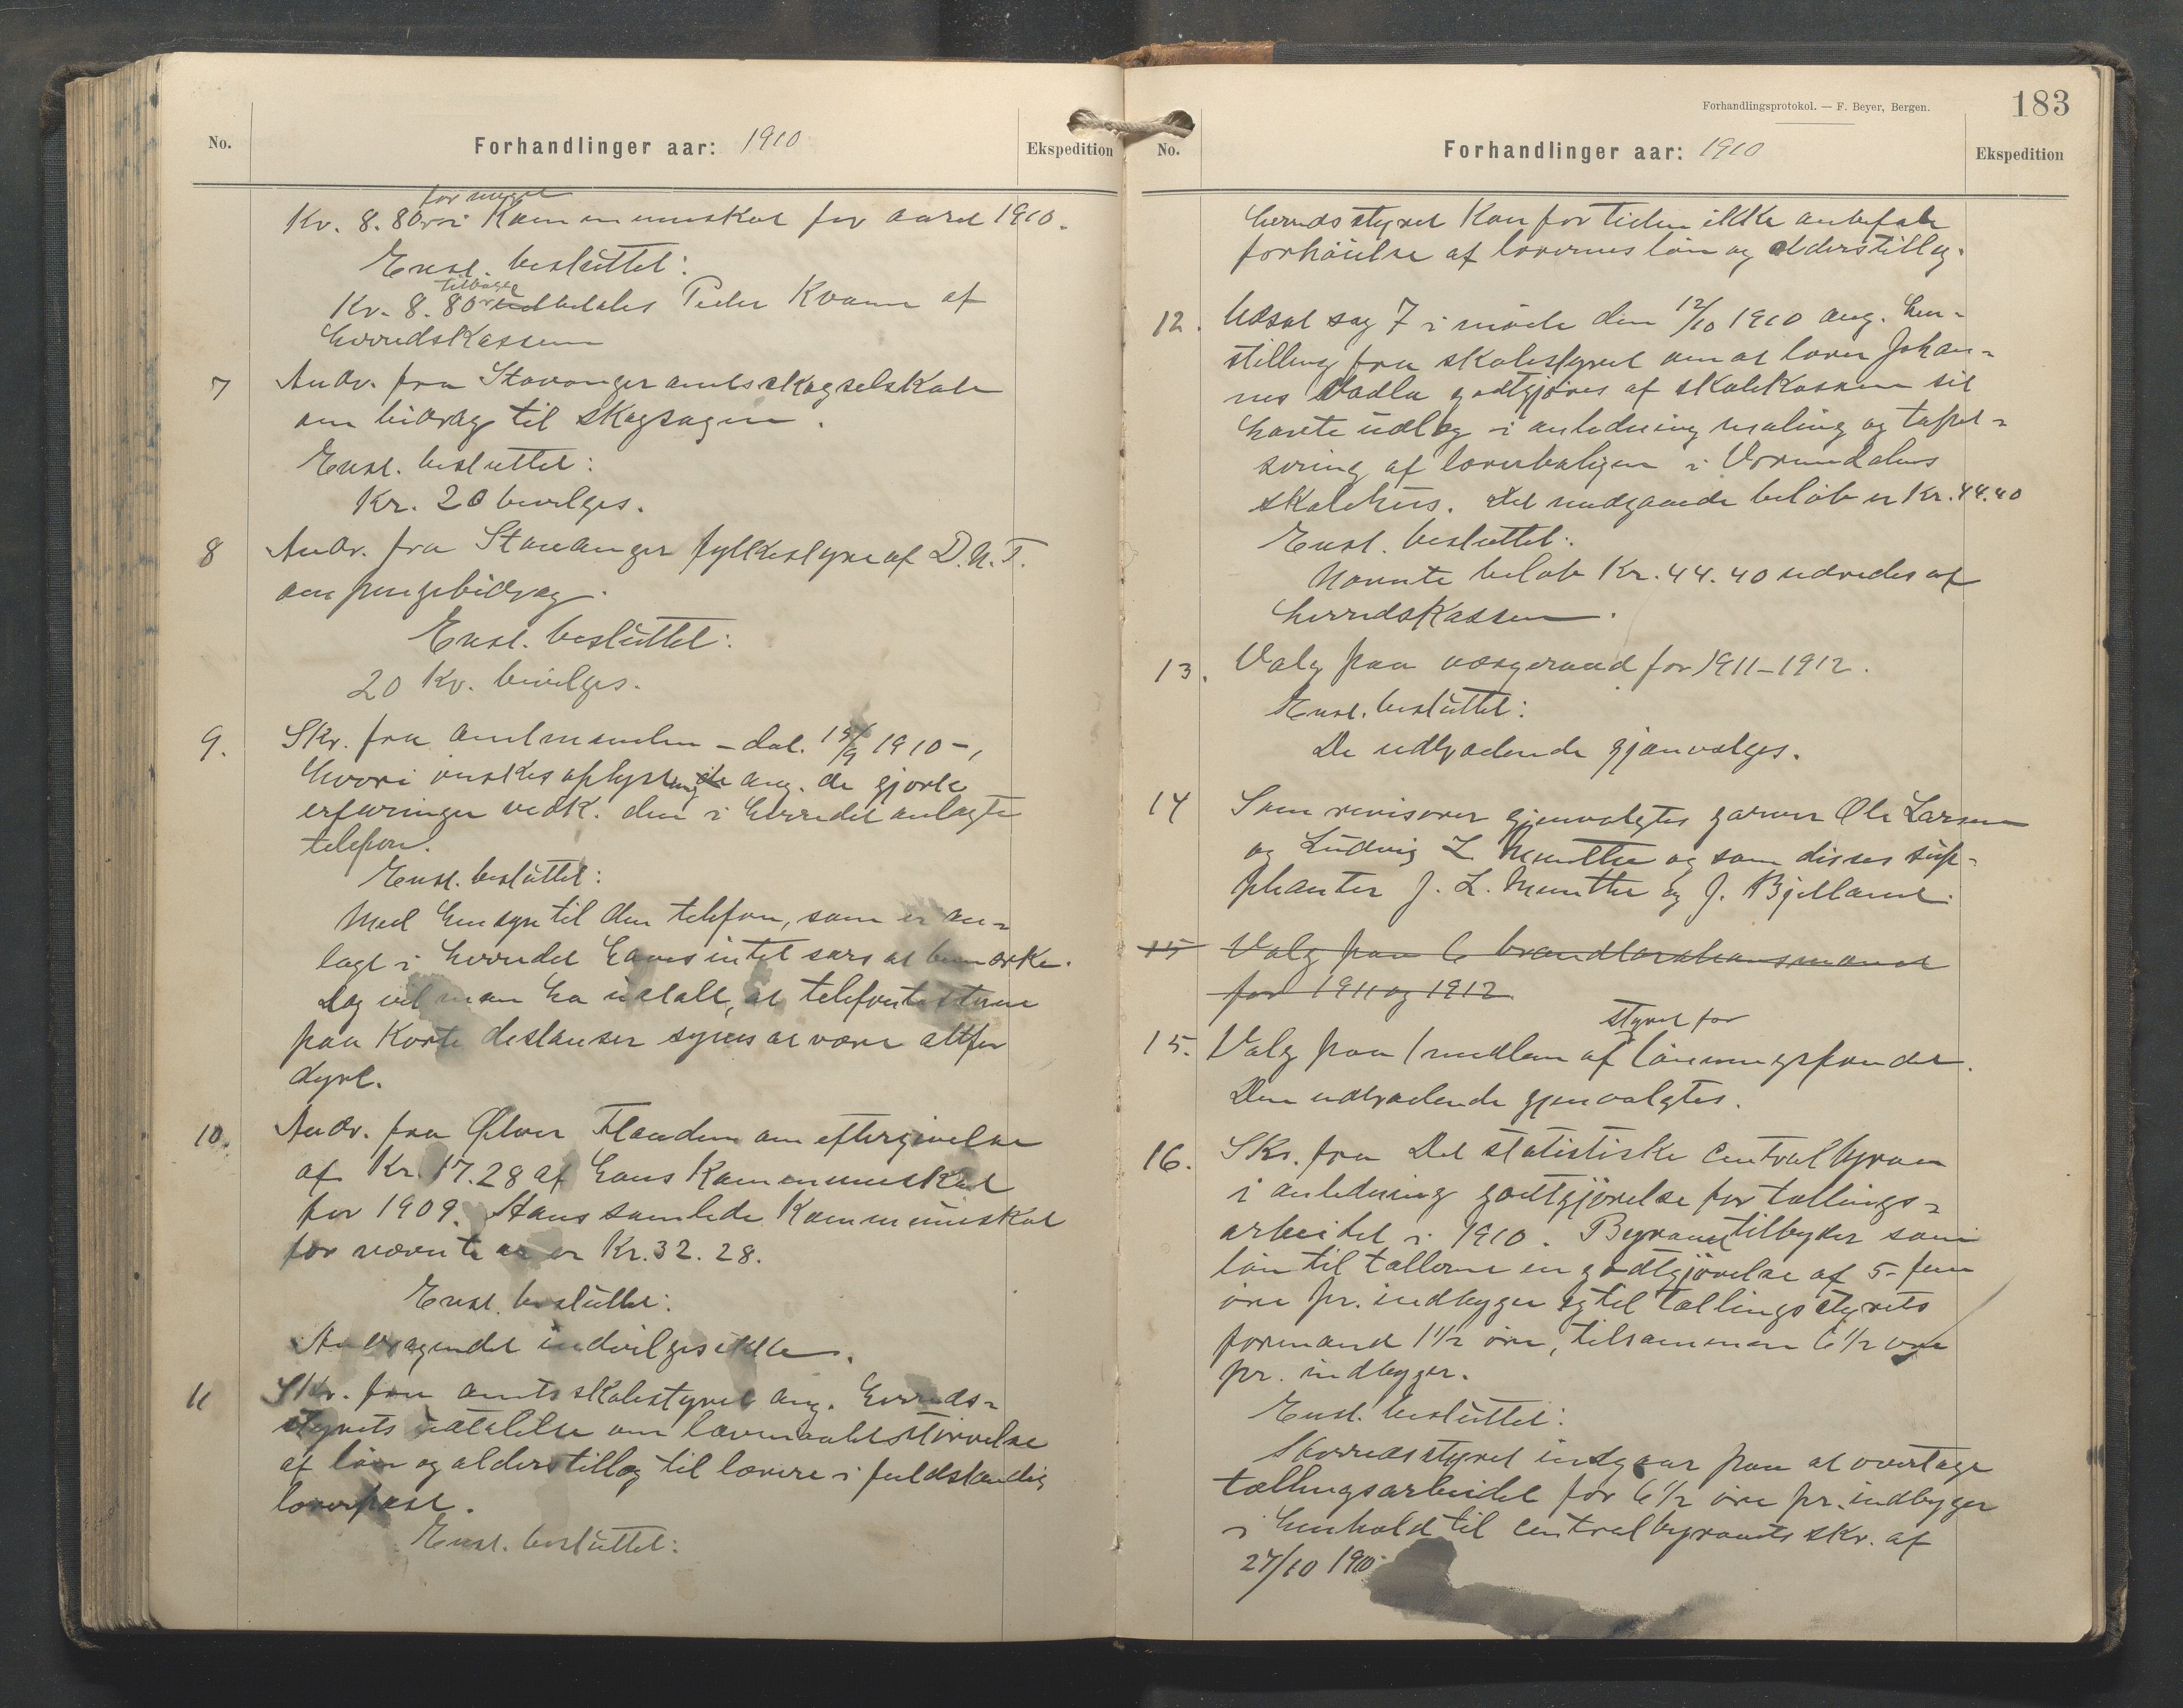 No.
Forhandlinger aar: 1910
Ekspedition
for meget
Kr. 8.80 i Kommuneskat for aaret 1910.
Enst. besluttet:
tilbage
Kr. 8.80 udbetales Peder Kvame af
herredskassen
7 Andr. fra Stavanger amtsskogselskab
om bidrag til skogsagen.
Enst. besluttet:
Kr. 20 bevilges.
8 Andr. fra Stavanger fylkesstyre af D.N.T.
om pengebidrag.
Enst. besluttet:
20 Kr. bevilges.
9. Skr. fra amtmanden – dat. 15/9 1910 –,
hvori ønskes oplysning ang. de gjorte
erfaringer vedk. den i herredet anlagte
telefon.
Enst. besluttet:
Med hensyn til den telefon, som er an-
lagt i herredet haves intet særs at bemærke.
Dog vil man ha uttalt, at telefontaksterne
paa korte distanser synes at være altfor
dyre.
10. Andr. fra Ølver Flaadem om eftergivelse
af Kr. 17.28 af hans Kommuneskat
for 1909. Hans samlede Kommuneskat
for nævnte aar er Kr. 32.28.
Enst. besluttet:
Andragendet indvilges ikke.
11 Skr. fra amtsskolestyret ang. herreds-
styrets udtalelse om lavmaalsstørrelse
af løn og alderstillæg til lærere i fuldstændig
lærerpost.
Enst. besluttet:
Forhandlingsprotokol. — F. Beyer, Bergen.
183
No.
Forhandlinger aar: 1910
Ekspedition
herredsstyret kan for tiden ikke anbefale
forhøielse af lærernes løn og alderstillæg.
12. Udsat sag 7 i møde den 12/10 1910 ang. hen-
stilling fra skolestyret om at lærer Johan-
nes Vadla godtgjøres af skolekassen sit
havte udlæg i anledning maling og tapet-
sering af lærerboligen i Vormedalens
skolehus. Det medgaaede beløb er Kr. 44.40
Enst. besluttet:
Nævnte beløb Kr. 44.40 udredes af
herredskassen.
13. Valg paa værgeraad for 1911–1912.
Enst. besluttet:
De udtrædende gjenvælges.
14 Som revisorer gjenvalgtes garver Ole Larsen
og Ludvig L. Munthe og som disses sup-
pleanter J. L. Munthe og J. Bjelland.
15 Valg paa 6 brandtakstmænd
for 1911 og 1912
styret for
15. Valg paa 1 medlem af lønningsfondet.
Den udtrædende gjenvalgtes.
16. Skr. fra Det statistiske Centralbyraa
i anledning godtgjørelse for tællings-
arbeidet i 1910. Byraaet tilbyder som
løn til tællerne en godtgjørelse af 5 - fem
øre pr. indbygger og til tællingsstyrets
formand 1½ øre, tilsammen 6½ øre
pr. indbygger.
Enst. besluttet:
Herredsstyret indgaar paa at overtage
tællingsarbeidet for 6½ øre pr. indbygger
i henhold til centralbyraaets skr. af
27/10 1910.